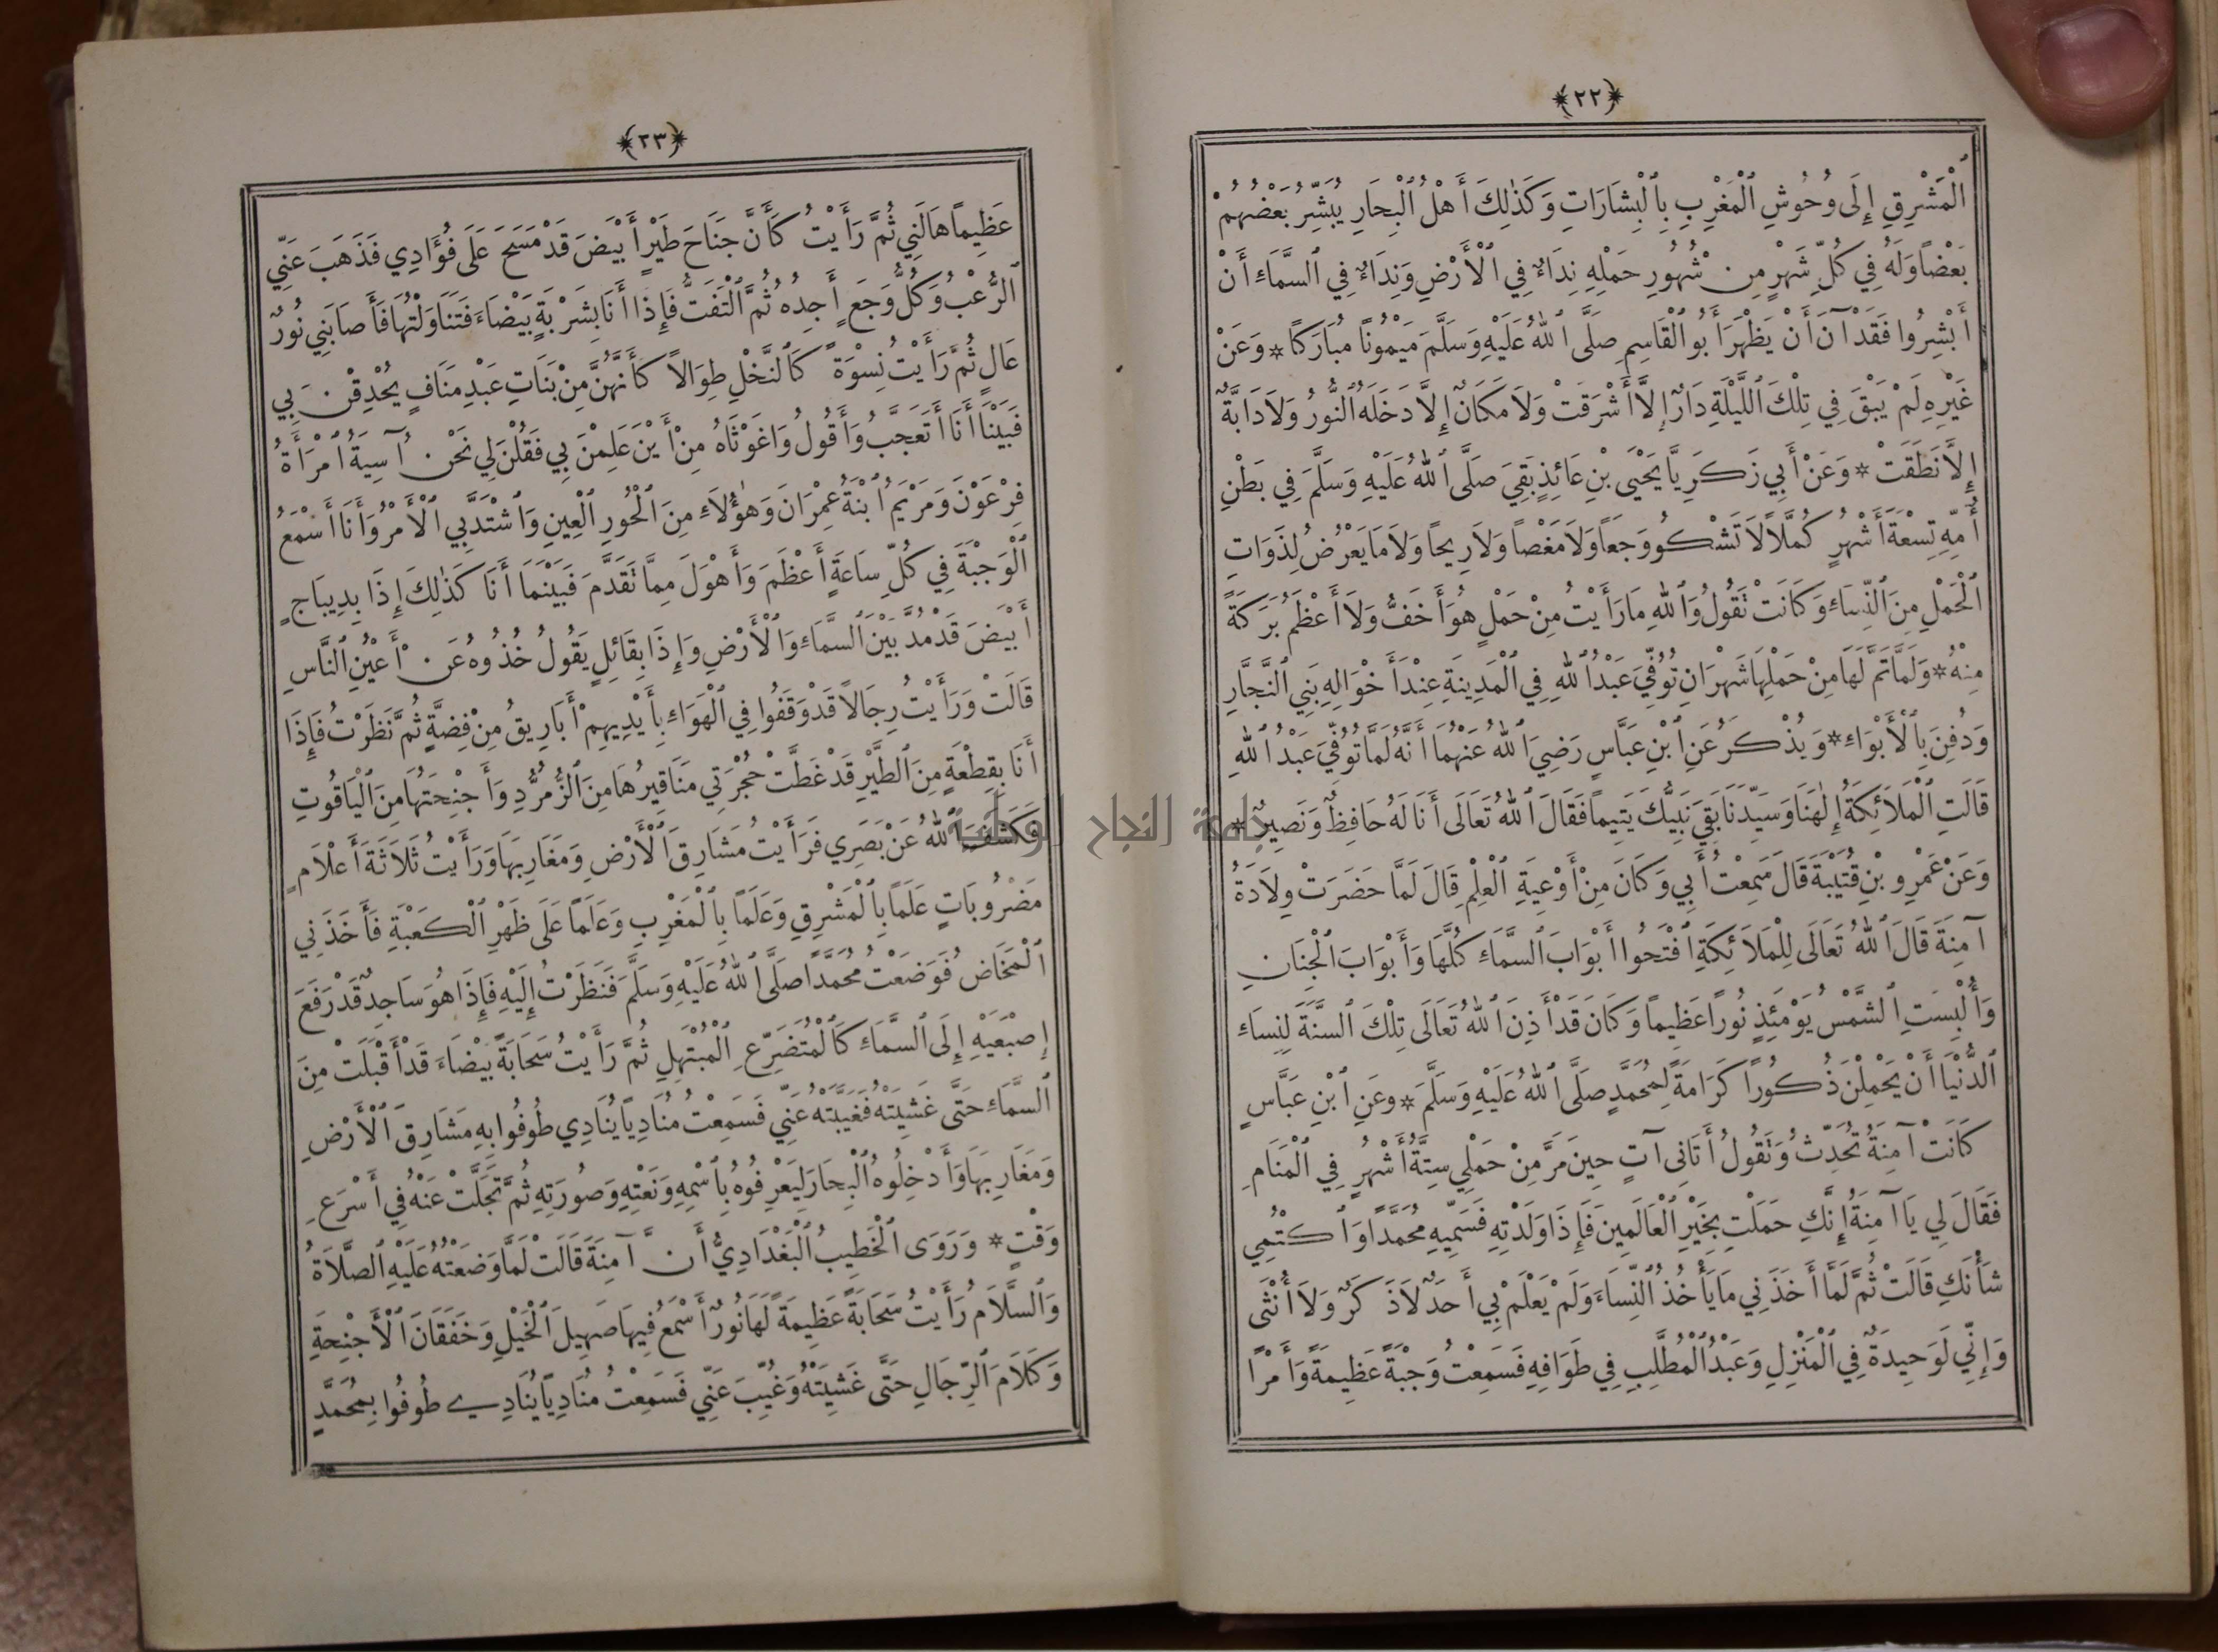 ﴿٢٢﴾
ٱلْمَشْرِقِ إِلَى وُحُوشِ ٱلْمَغْرِبِ بِٱلْبِشَارَاتِ وَكَذٰلِكَ أَهْلُ ٱلْبِحَارِ يُبَشِّرُ بَعْضُهُمْ
بَعْضًا وَلَهُ فِي كُلِّ شَهْرٍ مِنْ شُهُورِ حَمْلِهِ نِدَاءٌ فِي ٱلْأَرْضِ وَنِدَاءٌ فِي ٱلسَّمَاءِ أَنْ
أَبْشِرُوا فَقَدْ آنَ أَنْ يَظْهَرَ أَبُو ٱلْقَاسِمِ صَلَّى ٱللهُ عَلَيْهِ وَسَلَّمَ مَيْمُونًا مُبَارَكًا * وَعَنْ
غَيْرِهِ لَمْ يَبْقَ فِي تِلْكَ ٱللَّيْلَةِ دَارٌ إِلاَّ أَشْرَقَتْ وَلاَ مَكَانٌ إِلاَّ دَخَلَهُ ٱلنُّورُ وَلاَ دَابَّةٌ
إِلاَّ نَطَقَتْ * وَعَنْ أَبِي زَكَرِيَّا يَحْيَى بْنِ عَائِذٍ بَقِيَ صَلَّى ٱللهُ عَلَيْهِ وَسَلَّمَ فِي بَطْنِ
أُمِّهِ تِسْعَةَ أَشْهُرٍ كُمَّلاً لاَ تَشْكُو وَجَعًا وَلاَ مَغْصًا وَلاَ رِيحًا وَلاَ مَا يَعْرُضُ لِذَوَاتِ
ٱلْحَمْلِ مِنَ ٱلنِّسَاءِ وَكَانَتْ تَقُولُ وَٱللهِ مَا رَأَيْتُ مِنْ حَمْلٍ هُوَ أَخَفُّ وَلاَ أَعْظَمُ بَرَكَةً
مِنْهُ * وَلَمَّا تَمَّ لَهَا مِنْ حَمْلِهَا شَهْرَانِ تُوُفِّيَ عَبْدُ ٱللهِ فِي ٱلْمَدِينَةِ عِنْدَ أَخْوَالِهِ بَنِي ٱلنَّجَّارِ
وَدُفِنَ بِٱلْأَبْوَاءِ * وَيُذْكَرُ عَنِ ٱبْنِ عَبَّاسٍ رَضِيَ ٱللهُ عَنْهُمَا أَنَّهُ لَمَّا تُوُفِّيَ عَبْدُ ٱللهِ
قَالَتِ ٱلْمَلاَئِكَةُ إِلٰهَنَا وَسَيِّدَنَا بَقِيَ نَبِيُّكَ يَتِيمًا فَقَالَ ٱللهُ تَعَالَى أَنَا لَهُ حَافِظٌ وَنَصِيرٌ *
وَعَنْ عَمْرِو بْنِ قُتَيْبَةَ قَالَ سَمِعْتُ أَبِي وَكَانَ مِنْ أَوْعِيَةِ ٱلْعِلْمِ قَالَ لَمَّا حَضَرَتْ وِلاَدَةُ
آمِنَةَ قَالَ ٱللهُ تَعَالَى لِلْمَلاَئِكَةِ ٱفْتَحُوا أَبْوَابَ ٱلسَّمَاءِ كُلَّهَا وَأَبْوَابَ ٱلْجِنَانِ
وَأُلْبِسَتِ ٱلشَّمْسُ يَوْمَئِذٍ نُورًا عَظِيمًا وَكَانَ قَدْ أَذِنَ ٱللهُ تَعَالَى تِلْكَ ٱلسَّنَةَ لِنِسَاءِ
ٱلدُّنْيَا أَنْ يَحْمِلْنَ ذُكُورًا كَرَامَةً لِمُحَمَّدٍ صَلَّى ٱللهُ عَلَيْهِ وَسَلَّمَ * وعَنِ ٱبْنِ عَبَّاسٍ
كَانَتْ آمِنَةُ تُحَدِّثُ وَتَقُولُ أَتَانِي آتٍ حِينَ مَرَّ مِنْ حَمْلِي سِتَّةُ أَشْهُرٍ فِي ٱلْمَنَامِ
فَقَالَ لِي يَا آمِنَةُ إِنَّكِ حَمَلْتِ بِخَيْرِ ٱلْعَالَمِينَ فَإِذَا وَلَدْتِهِ فَسَمِّيهِ مُحَمَّدًا وَٱكْتُمِي
شَأْنَكِ قَالَتْ ثُمَّ لَمَّا أَخَذَنِي مَا يَأْخُذُ ٱلنِّسَاءَ وَلَمْ يَعْلَمْ بِي أَحَدٌ لاَ ذَكَرٌ وَلاَ أُنْثَى
وَإِنِّي لَوَحِيدَةٌ فِي ٱلْمَنْزِلِ وَعَبْدُ ٱلْمُطَّلِبِ فِي طَوَافِهِ فَسَمِعْتُ وَجْبَةً عَظِيمَةً وَأَمْرًا
﴿٢٣﴾
عَظِيمًا هَالَنِي ثُمَّ رَأَيْتُ كَأَنَّ جَنَاحَ طَيْرٍ أَبْيَضَ قَدْ مَسَحَ عَلَى فُؤَادِي فَذَهَبَ عَنِّي
ٱلرُّعْبُ وَكُلُّ وَجَعٍ أَجِدُهُ ثُمَّ ٱلْتَفَتُّ فَإِذَا أَنَا بِشَرْبَةٍ بَيْضَاءَ فَتَنَاوَلْتُهَا فَأَصَابَنِي نُورٌ
عَالٍ ثُمَّ رَأَيْتُ نِسْوَةً كَٱلنَّخْلِ طِوَالاً كَأَنَّهُنَّ مِنْ بَنَاتِ عَبْدِ مَنَافٍ يُحْدِقْنَ بِي
فَبَيْنَا أَنَا أَتَعَجَّبُ وَأَقُولُ وَاغَوْثَاهُ مِنْ أَيْنَ عَلِمْنَ بِي فَقُلْنَ لِي نَحْنُ آسِيَةُ ٱمْرَأَةُ
فِرْعَوْنَ وَمَرْيَمُ ٱبْنَةُ عِمْرَانَ وَهٰؤُلاَءِ مِنَ ٱلْحُورِ ٱلْعِينِ وَٱشْتَدَّ بِي ٱلْأَمْرُ وَأَنَا أَسْمَعُ
ٱلْوَجْبَةَ فِي كُلِّ سَاعَةٍ أَعْظَمَ وَأَهْوَلَ مِمَّا تَقَدَّمَ فَبَيْنَمَا أَنَا كَذٰلِكَ إِذَا بِدِيبَاجٍ
أَبْيَضَ قَدْ مُدَّ بَيْنَ ٱلسَّمَاءِ وَٱلْأَرْضِ وَإِذَا بِقَائِلٍ يَقُولُ خُذُوهُ عَنْ أَعْيُنِ ٱلنَّاسِ
قَالَتْ وَرَأَيْتُ رِجَالاً قَدْ وَقَفُوا فِي ٱلْهَوَاءِ بِأَيْدِيهِمْ أَبَارِيقُ مِنْ فِضَّةٍ ثُمَّ نَظَرْتُ فَإِذَا
أَنَا بِقِطْعَةٍ مِنَ ٱلطَّيْرِ قَدْ غَطَّتْ حُجْرَتِي مَنَاقِيرُهَا مِنَ ٱلزُّمُرُّدِ وَأَجْنِحَتُهَا مِنَ ٱلْيَاقُوتِ
فَكَشَفَ ٱللهُ عَنْ بَصَرِي فَرَأَيْتُ مَشَارِقَ ٱلْأَرْضِ وَمَغَارِبَهَا وَرَأَيْتُ ثَلاَثَةَ أَعْلاَمٍ
مَضْرُوبَاتٍ عَلَمًا بِٱلْمَشْرِقِ وَعَلَمًا بِٱلْمَغْرِبِ وَعَلَمًا عَلَى ظَهْرِ ٱلْكَعْبَةِ فَأَخَذَنِي
ٱلْمَخَاضُ فَوَضَعْتُ مُحَمَّدًا صَلَّى ٱللهُ عَلَيْهِ وَسَلَّمَ فَنَظَرْتُ إِلَيْهِ فَإِذَا هُوَ سَاجِدٌ قَدْ رَفَعَ
إِصْبَعَيْهِ إِلَى ٱلسَّمَاءِ كَٱلْمُتَضَرِّعِ ٱلْمُبْتَهِلِ ثُمَّ رَأَيْتُ سَحَابَةً بَيْضَاءَ قَدْ أَقْبَلَتْ مِنَ
ٱلسَّمَاءِ حَتَّى غَشِيَتْهُ فَغَيَّبَتْهُ عَنِّي فَسَمِعْتُ مُنَادِيًا يُنَادِي طُوفُوا بِهِ مَشَارِقَ ٱلْأَرْضِ
وَمَغَارِبَهَا وَأَدْخِلُوهُ ٱلْبِحَارَ لِيَعْرِفُوهُ بِٱسْمِهِ وَنَعْتِهِ وَصُورَتِهِ ثُمَّ تَجَلَّتْ عَنْهُ فِي أَسْرَعِ
وَقْتٍ * وَرَوَى ٱلْخَطِيبُ ٱلْبَغْدَادِيُّ أَنَّ آمِنَةَ قَالَتْ لَمَّا وَضَعْتُهُ عَلَيْهِ ٱلصَّلاَةُ
وَٱلسَّلاَمُ رَأَيْتُ سَحَابَةً عَظِيمَةً لَهَا نُورٌ أَسْمَعُ فِيهَا صَهِيلَ ٱلْخَيْلِ وَخَفَقَانَ ٱلْأَجْنِحَةِ
وَكَلاَمَ ٱلرِّجَالِ حَتَّى غَشِيَتْهُ وَغُيِّبَ عَنِّي فَسَمِعْتُ مُنَادِيًا يُنَادِي طُوفُوا بِمُحَمَّدٍ
جامعة النجاح الوطنية